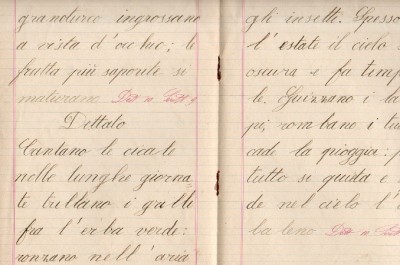 granoturco ingrossano
a vista d'occhio; le
frutta più saporite si
maturano
Dettato
Cantano le cicale
nelle lunghe giorna-
te trillano i grilli
fra l'erba verde:
ronzano nell'aria
gli insetti. Spesso
l'estate il cielo s
oscura e fa temp
te. Guizzano i la
pi; rombano i tu
cade la pioggia: p
tutto si queta e
de nel cielo l'a
baleno